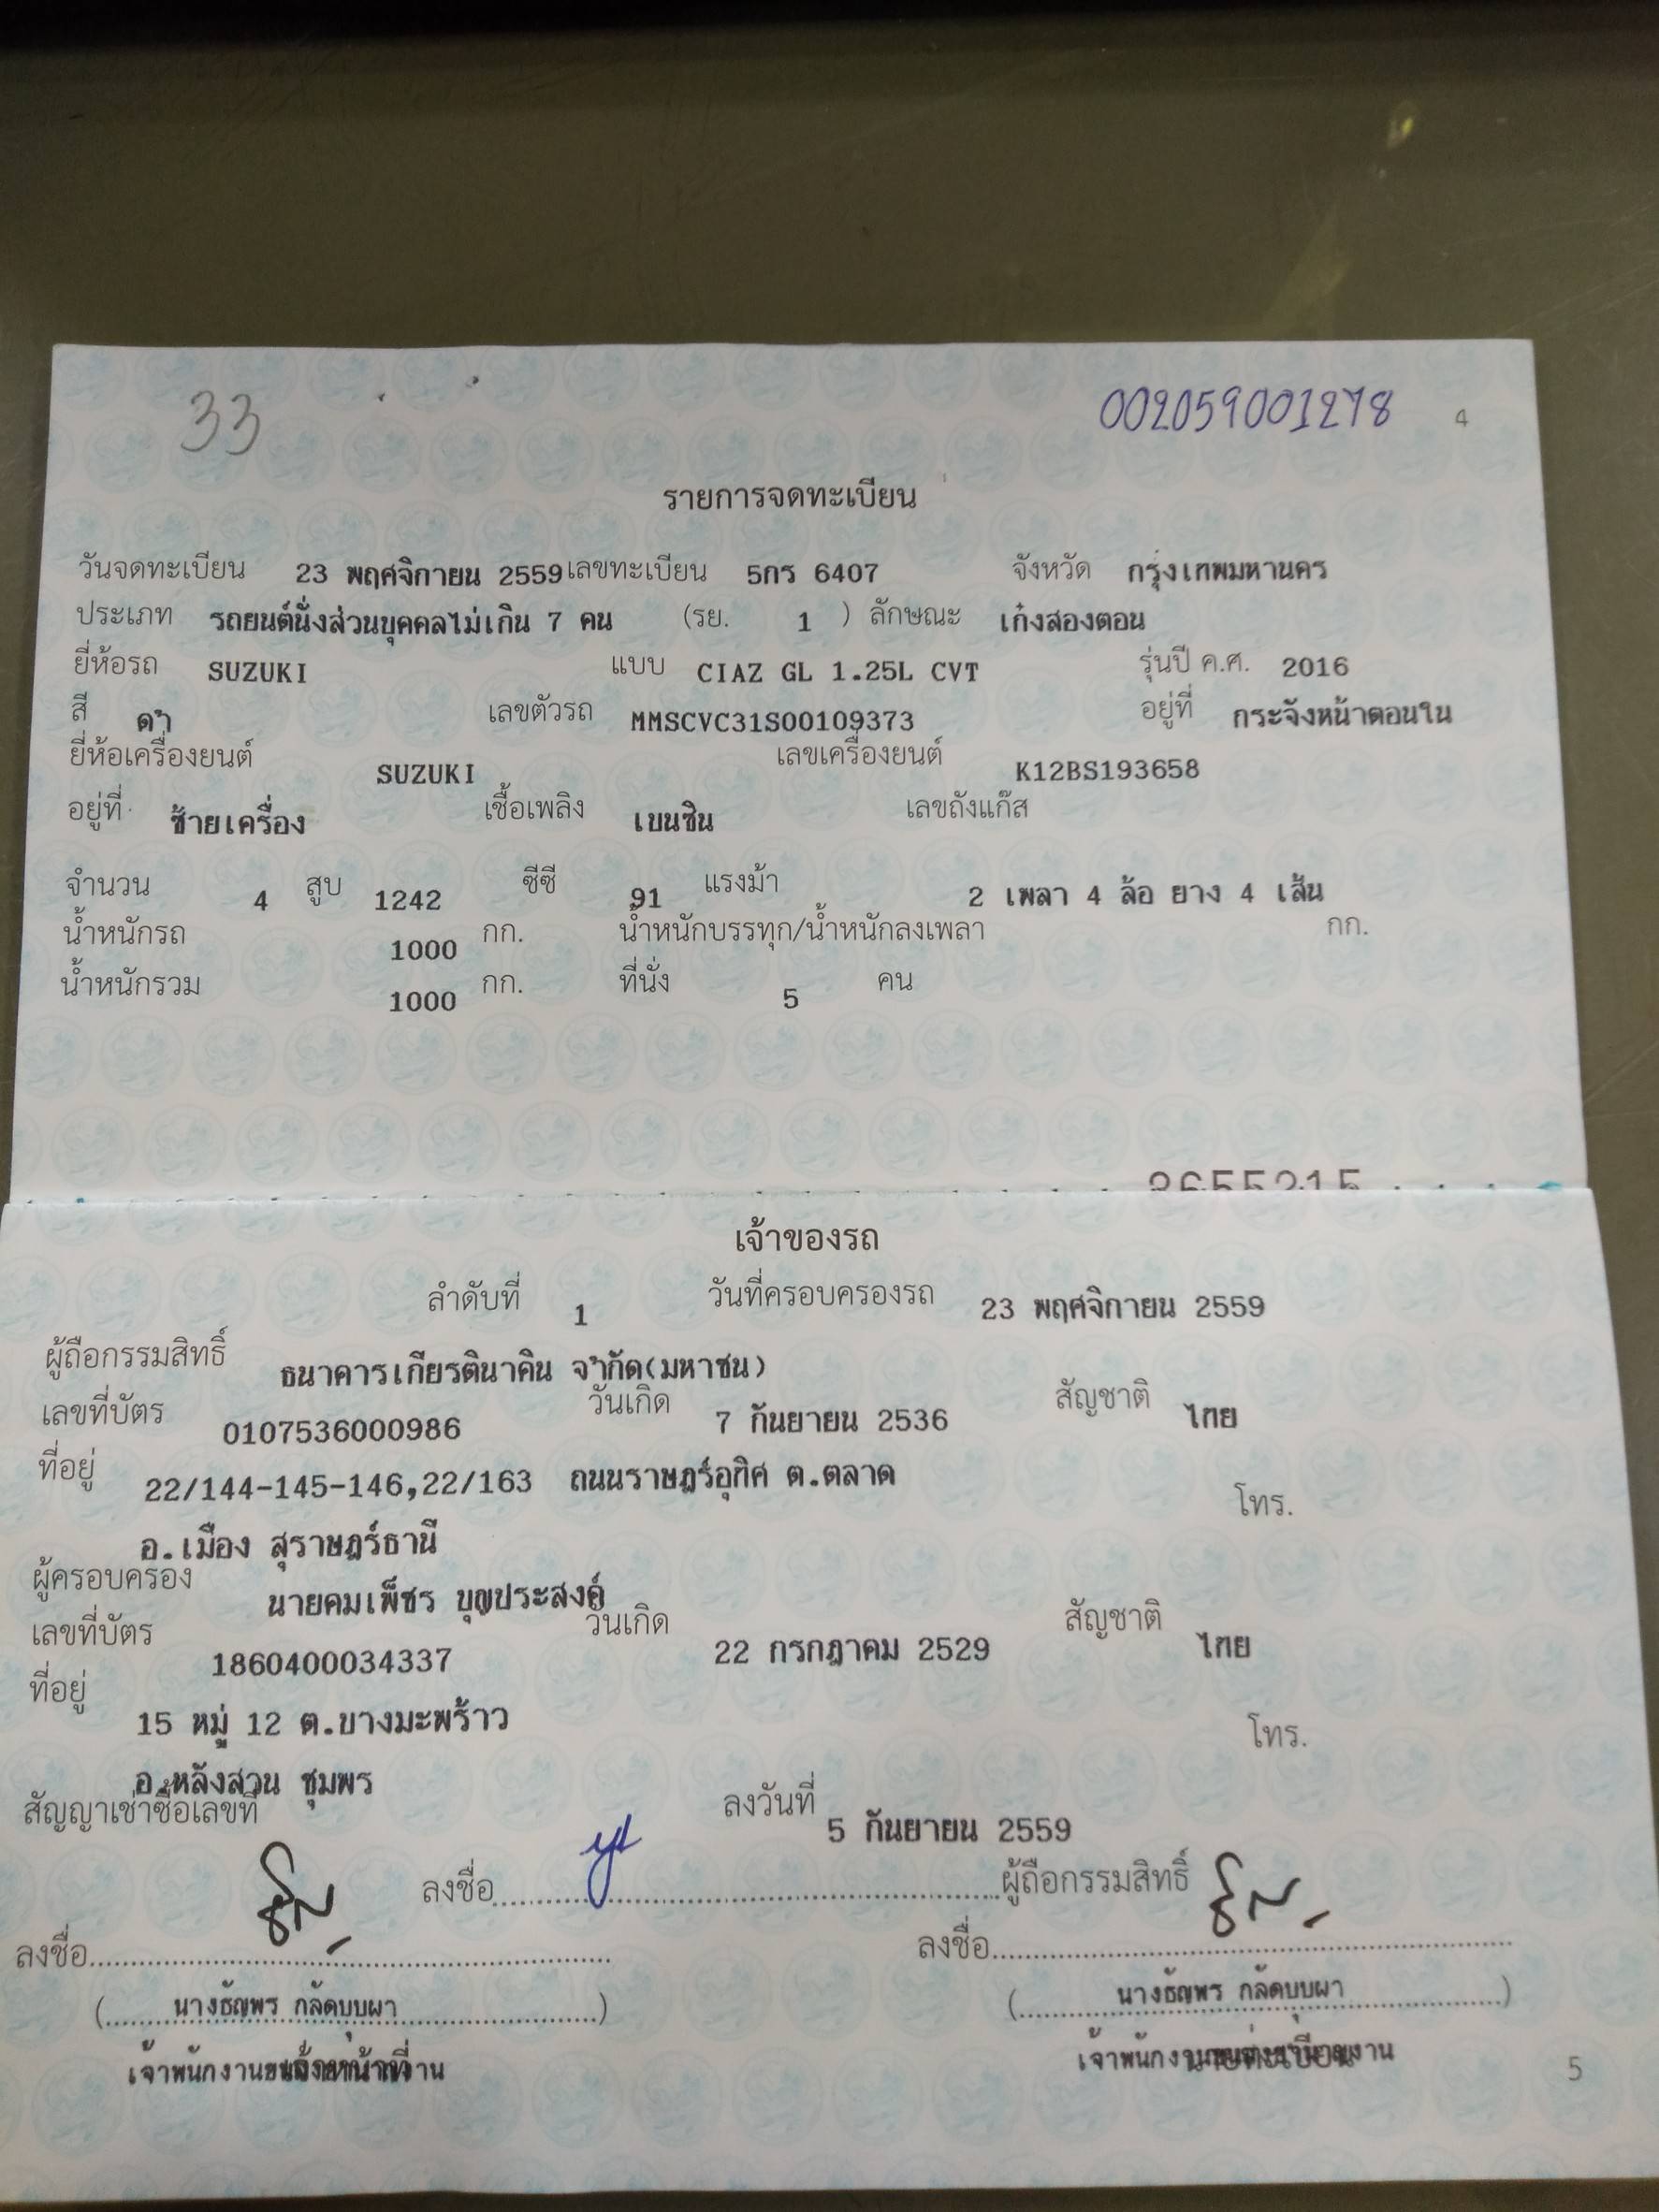 33 002059001278 4
รายการจดทะเบียน
วันจดทะเบียน 23 พฤศจิกายน 2559 เลขทะเบียน 5กร 6407 จังหวัด กรุงเทพมหานคร
ประเภท รถยนต์นั่งส่วนบุคคลไม่เกิน 7 คน (รย. 1 ) ลักษณะ เก๋งสองตอน
ยี่ห้อรถ SUZUKI แบบ CIAZ GL 1.25L CVT รุ่นปี ค.ศ. 2016
สี ดำ เลขตัวรถ MMSCVC31S00109373 อยู่ที่ กระจังหน้าตอนใน
ยี่ห้อเครื่องยนต์ SUZUKI เลขเครื่องยนต์ K12BS193658
อยู่ที่ ซ้ายเครื่อง เชื้อเพลิง เบนซิน เลขถังแก๊ส
จำนวน 4 สูบ 1242 ซีซี 91 แรงม้า 2 เพลา 4 ล้อ ยาง 4 เส้น
น้ำหนักรถ 1000 กก. น้ำหนักบรรทุก/น้ำหนักลงเพลา กก.
น้ำหนักรวม 1000 กก. ที่นั่ง 5 คน
เจ้าของรถ
ลำดับที่ 1 วันที่ครอบครองรถ 23 พฤศจิกายน 2559
ผู้ถือกรรมสิทธิ์ ธนาคารเกียรตินาคิน จำกัด(มหาชน)
เลขที่บัตร 0107536000986 วันเกิด 7 กันยายน 2536 สัญชาติ ไทย
ที่อยู่ 22/144-145-146,22/163 ถนนราษฎร์อุทิศ ต.ตลาด โทร.
อ.เมือง สุราษฎร์ธานี
ผู้ครอบครอง นายคมเพ็ชร บุญประสงค์
เลขที่บัตร 1860400034337 วันเกิด 22 กรกฎาคม 2529 สัญชาติ ไทย
ที่อยู่ 15 หมู่ 12 ต.บางมะพร้าว โทร.
อ.หลังสวน ชุมพร
สัญญาเช่าซื้อเลขที่ ลงวันที่ 5 กันยายน 2559
ลงชื่อ ผู้ถือกรรมสิทธิ์
ลงชื่อ ลงชื่อ
( นางธัญพร กลัดบุบผา ) ( นางธัญพร กลัดบุบผา )
เจ้าพนักงาน เจ้าพนักงาน
5